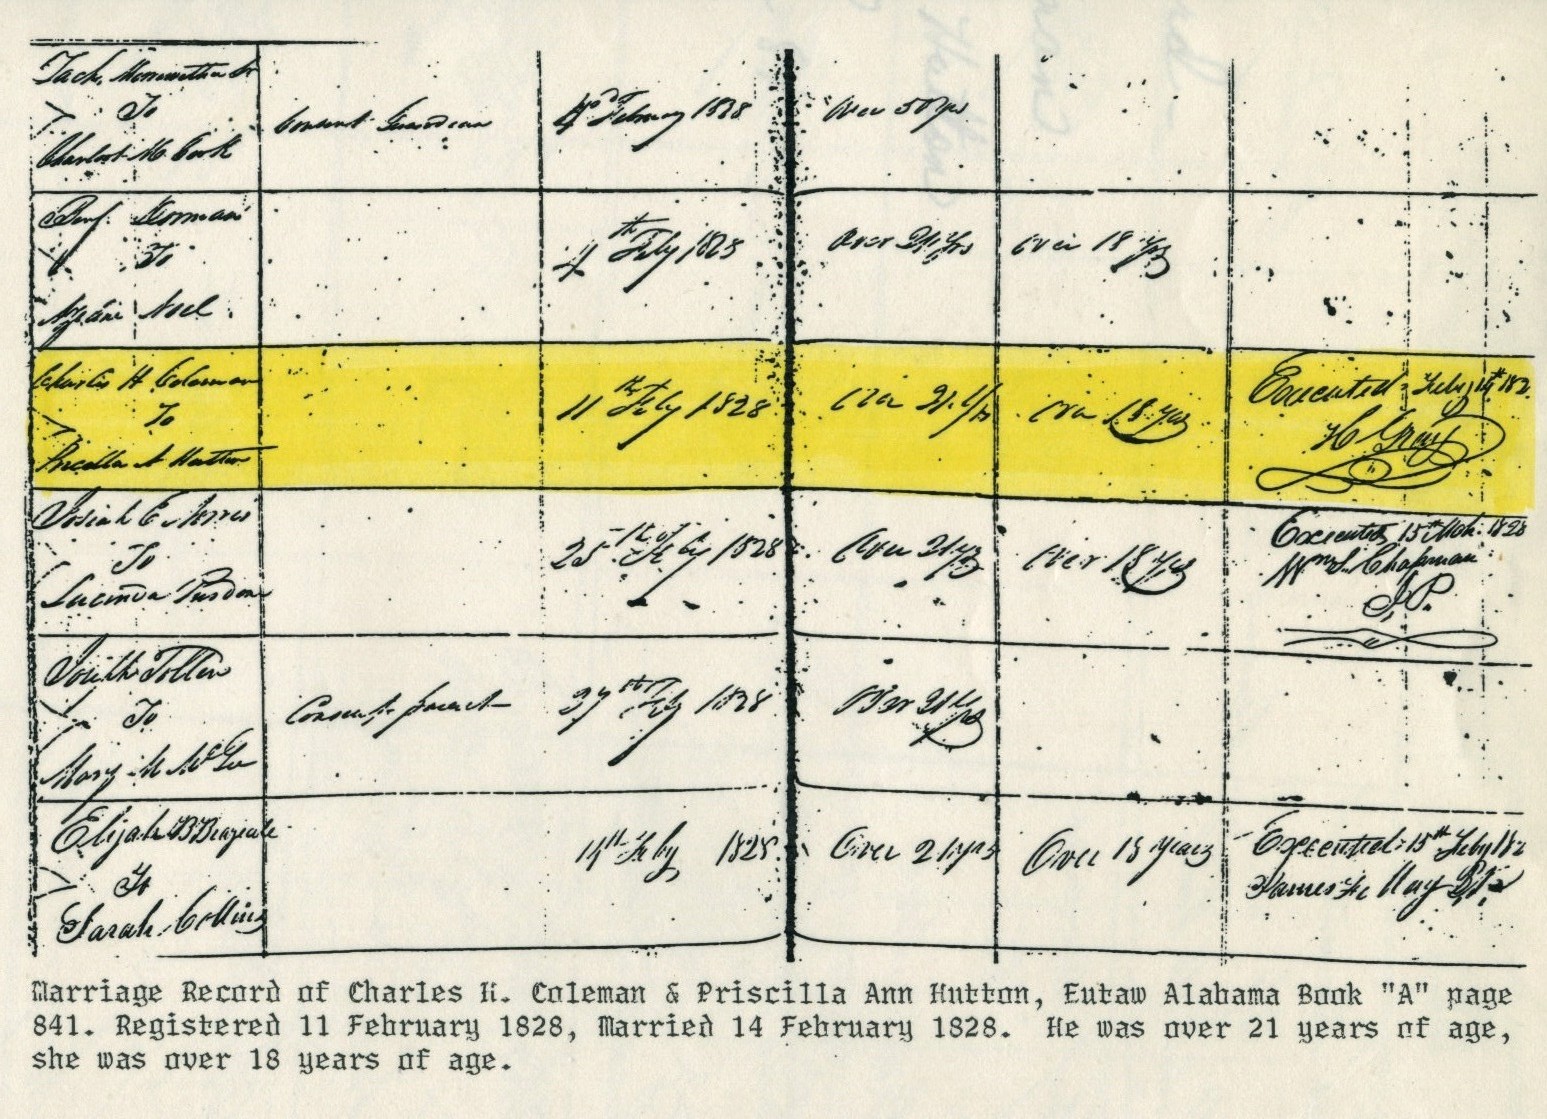 Zach. Meriwether Jr
To
Charlott M. Cook
Consent Guardian
4th February 1828
Over 50 yrs
Benj. Norman
To
Jane Noel
4th Feby 1828
Over 21 yrs
Over 18 yrs
Charles H Coleman
To
Pricella A Hutton
11th Feby 1828
Over 21 yrs
Over 18 yrs
Executed Feby 14th 182
H Gray
Josiah E Norris
To
Lucinda
25th of Feby 1828
Over 21 yrs
Over 18 yrs
Executed 15th Mch. 1828
Wm S. Chapman
J.P.
To
Mary M McGee
Consent parent
27th Feby 1828
Over 21 yrs
Elijah B Breazeale
To
Sarah Collins
14th Feby 1828
Over 21 yrs
Over 18 years
Executed 15th Feby 182
James H May
Marriage Record of Charles H. Coleman & Priscilla Ann Hutton, Eutaw Alabama Book "A" page
841. Registered 11 February 1828, Married 14 February 1828. He was over 21 years of age,
she was over 18 years of age.